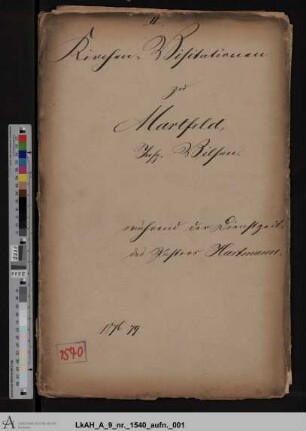 11
Kirchen-Visitationen
zu
Martfeld,
Insp. Vilsen.
während der Dienstzeit
des Pastors Hartmann.
1540
LkAH_A_9_nr._1540_aufn._001